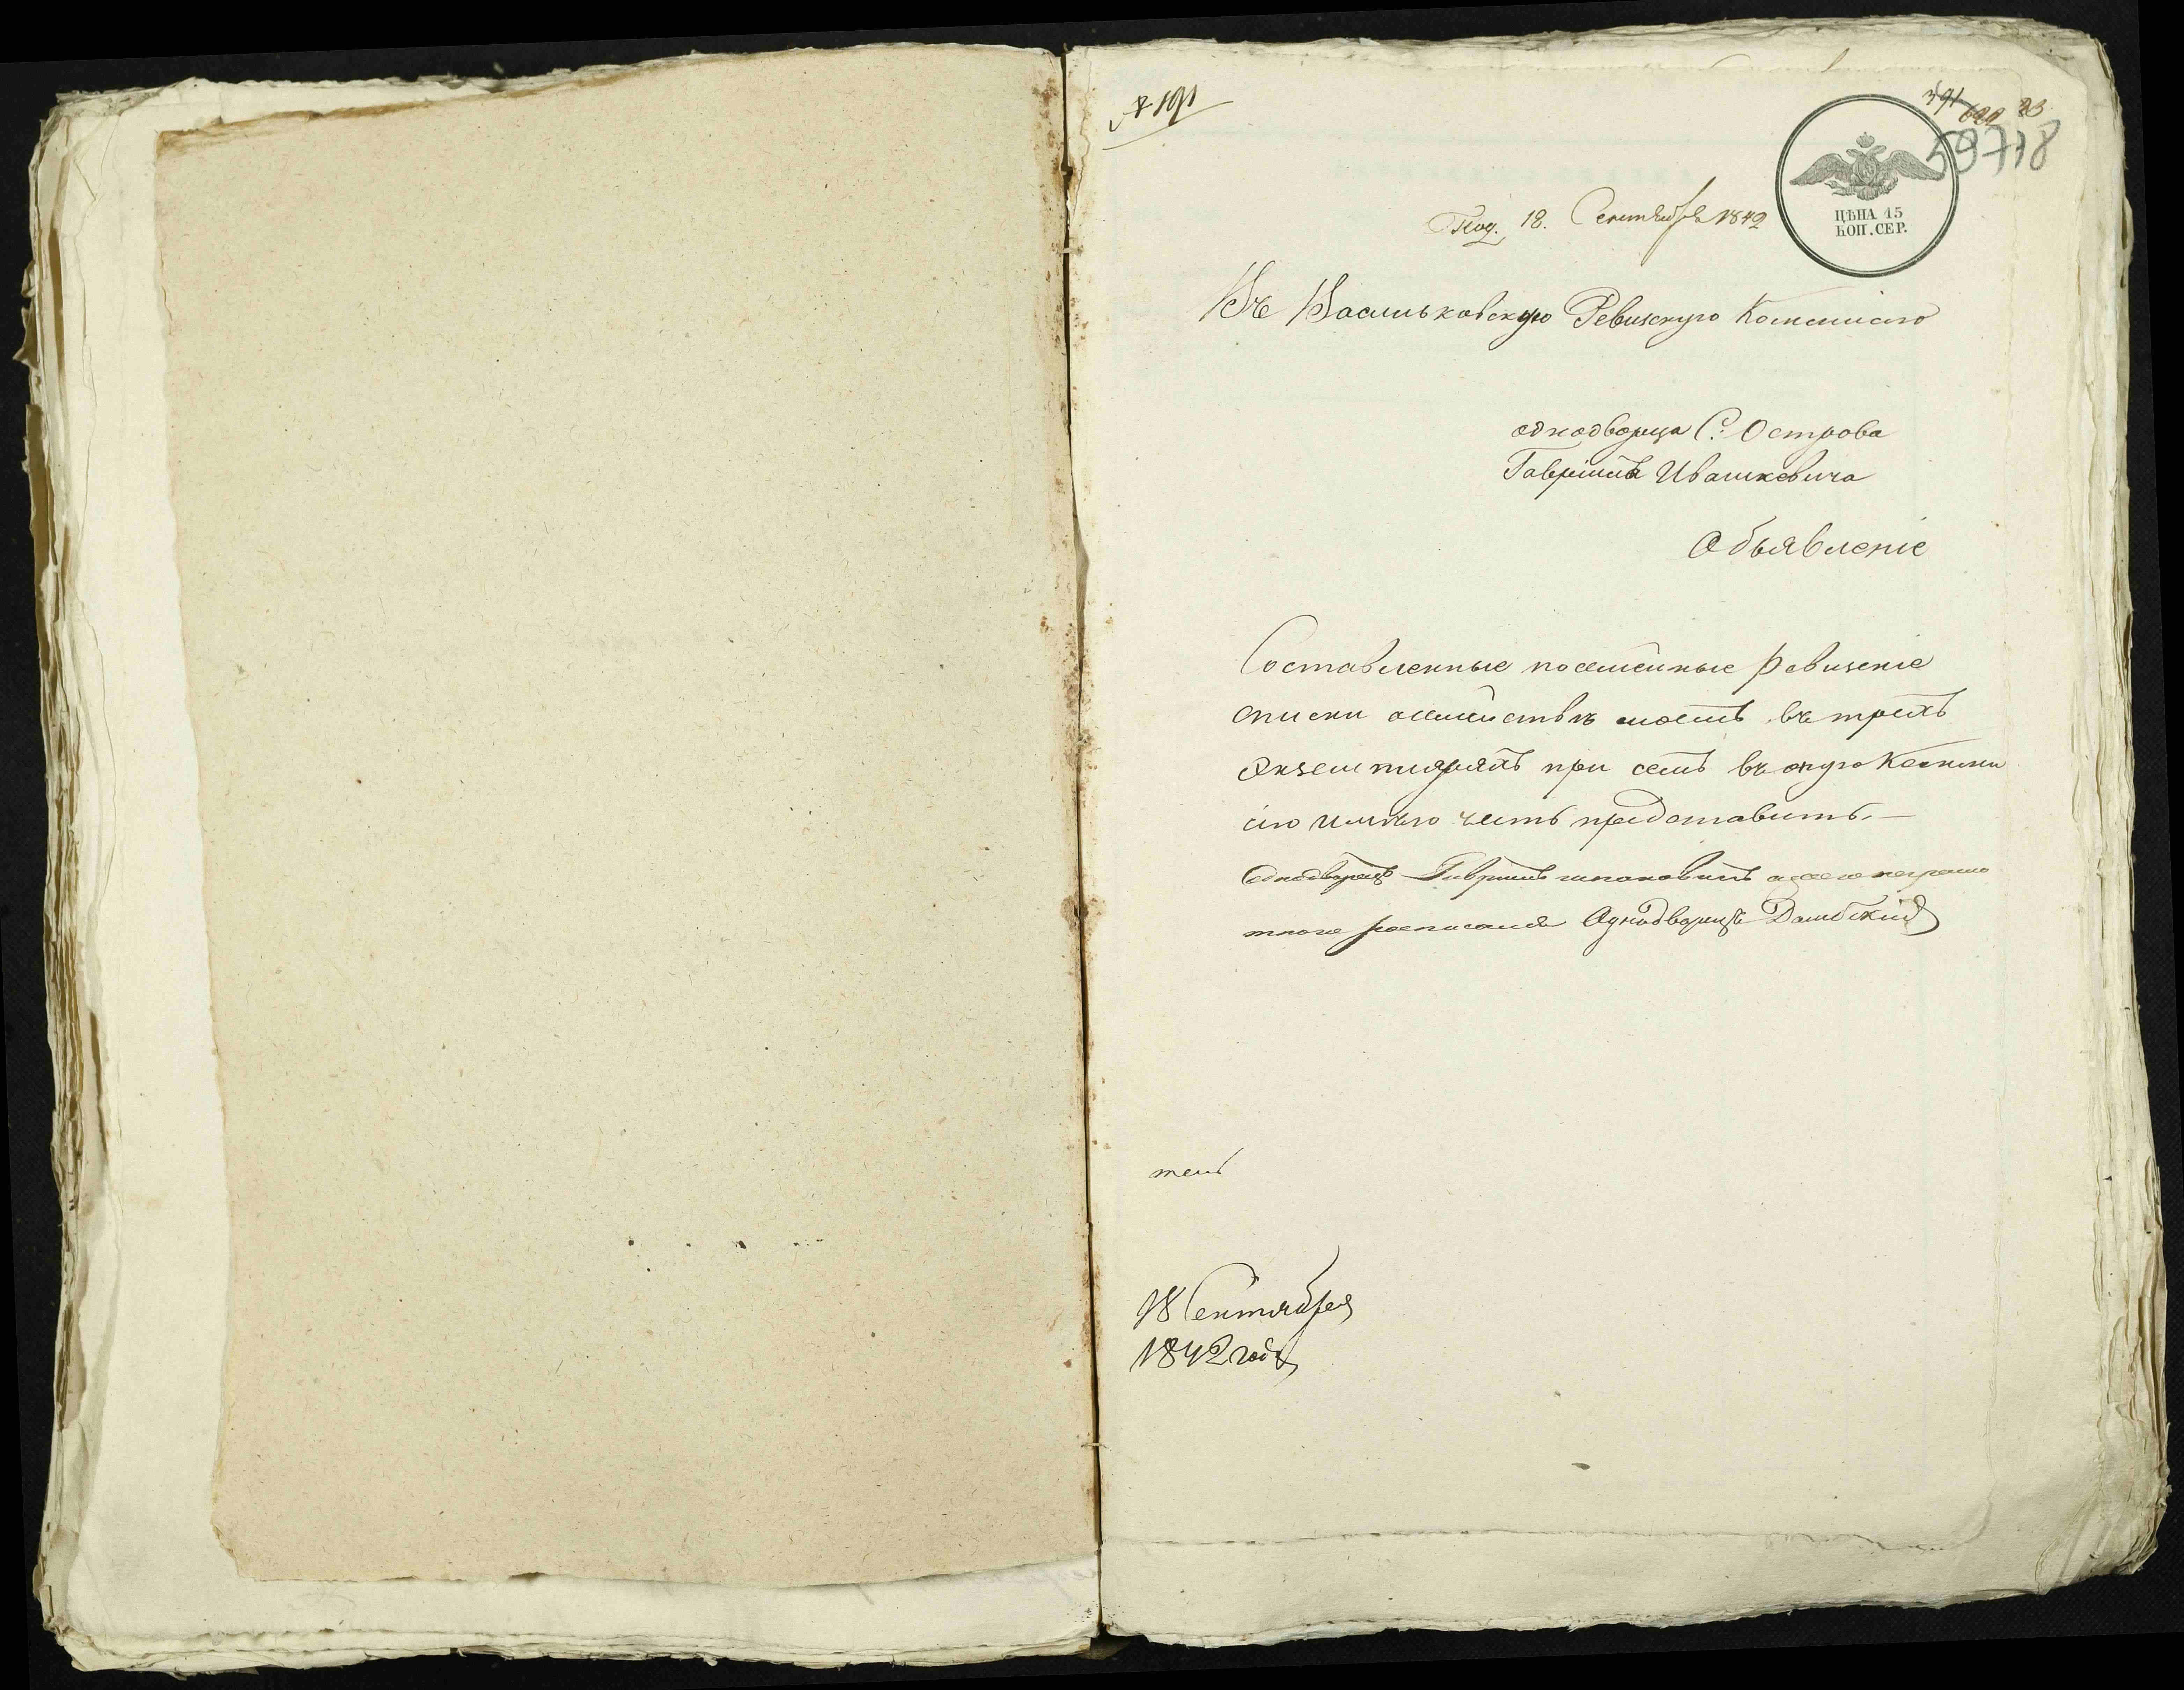 № 191
391 23
59718
ЦѢНА 15
КОП. СЕР.
Под. 18. Сентября 1842
Въ Васильковскую Ревизскую Коммисію
однодворца С: Острова
Гавріила Ивашкевича
Объявленіе
Составленные посемейные Ревизскіе
списки о семействѣ моемъ въ трехъ
Экземплярахъ при семъ въ оную Комми
сію имѣю честь представить.—
Однодворецъ Гавріилъ а за его неграмо
тного росписался Однодворецъ Домбскій
тель
18 Сентября
1842 года